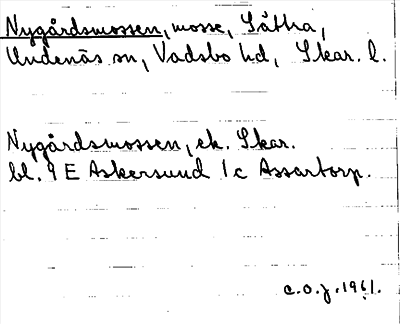 Nygårdsmossen, mosse, Såtha,
Undenäs sn, Vadsbo hd, Skar. l.
Nygårdsmossen, ek. Skar.
bl. 9 E Askersund 1c Assartorp.
C.O.J. 1961.